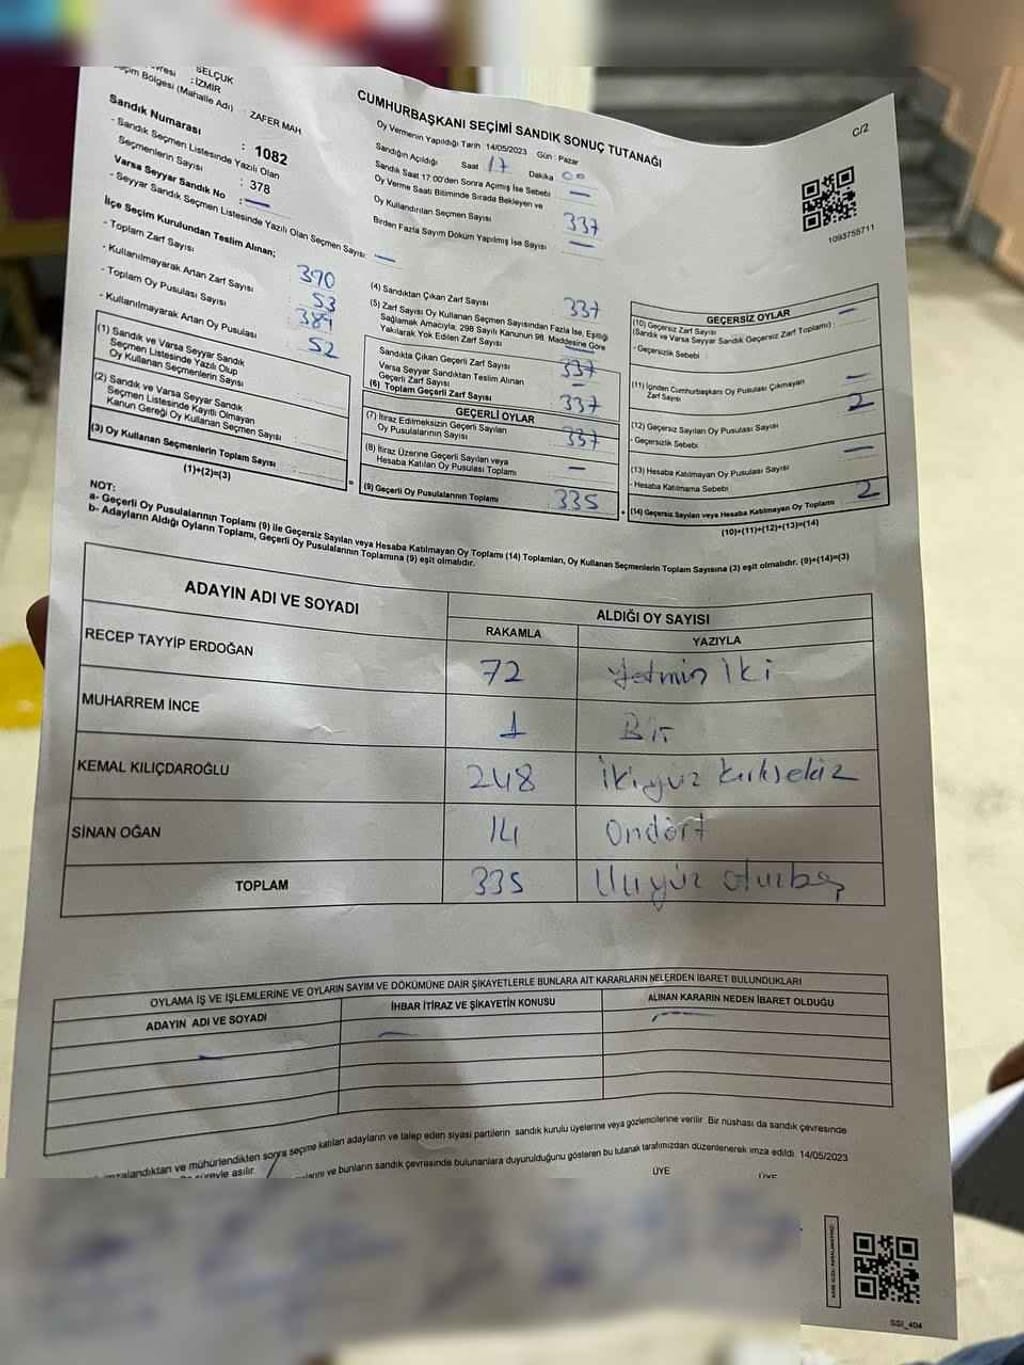 SELÇUK
: İZMİR
Bölgesi (Mahalle Adı) : ZAFER MAH
Sandık Numarası : 1082
- Sandık Seçmen Listesinde Yazılı Olan
Seçmenlerin Sayısı : 378
Varsa Seyyar Sandık No : —
- Seyyar Sandık Seçmen Listesinde Yazılı Olan Seçmen Sayısı: —
İlçe Seçim Kurulundan Teslim Alınan;
- Toplam Zarf Sayısı 390
- Kullanılmayarak Artan Zarf Sayısı 53
- Toplam Oy Pusulası Sayısı 389
- Kullanılmayarak Artan Oy Pusulası 52
(1) Sandık ve Varsa Seyyar Sandık
Seçmen Listesinde Yazılı Olup
Oy Kullanan Seçmenlerin Sayısı
(2) Sandık ve Varsa Seyyar Sandık
Seçmen Listesinde Kayıtlı Olmayan
Kanun Gereği Oy Kullanan Seçmen Sayısı
(3) Oy Kullanan Seçmenlerin Toplam Sayısı
(1)+(2)=(3)
CUMHURBAŞKANI SEÇİMİ SANDIK SONUÇ TUTANAĞI
C/2
Oy Vermenin Yapıldığı Tarih 14/05/2023 Gün : Pazar
Sandığın Açıldığı Saat 17 Dakika 00
Sandık Saat 17:00'den Sonra Açılmış İse Sebebi —
Oy Verme Saati Bitiminde Sırada Bekleyen ve
Oy Kullandırılan Seçmen Sayısı 337
Birden Fazla Sayım Döküm Yapılmış İse Sayısı —
1093755711
(4) Sandıktan Çıkan Zarf Sayısı 337
(5) Zarf Sayısı Oy Kullanan Seçmen Sayısından Fazla İse, Eşitliği
Sağlamak Amacıyla; 298 Sayılı Kanunun 98. Maddesine Göre
Yakılarak Yok Edilen Zarf Sayısı —
Sandıkta Çıkan Geçerli Zarf Sayısı 337
Varsa Seyyar Sandıktan Teslim Alınan
Geçerli Zarf Sayısı —
(6) Toplam Geçerli Zarf Sayısı 337
GEÇERLİ OYLAR
(7) İtiraz Edilmeksizin Geçerli Sayılan
Oy Pusulalarının Sayısı 337
(8) İtiraz Üzerine Geçerli Sayılan veya
Hesaba Katılan Oy Pusulası Toplamı —
(9) Geçerli Oy Pusulalarının Toplamı 335
GEÇERSİZ OYLAR
(10) Geçersiz Zarf Sayısı
(Sandık ve Varsa Seyyar Sandık Geçersiz Zarf Toplamı) : —
- Geçersizlik Sebebi
(11) İçinden Cumhurbaşkanı Oy Pusulası Çıkmayan
Zarf Sayısı —
(12) Geçersiz Sayılan Oy Pusulası Sayısı 2
- Geçersizlik Sebebi
(13) Hesaba Katılmayan Oy Pusulası Sayısı —
- Hesaba Katılmama Sebebi
(14) Geçersiz Sayılan veya Hesaba Katılmayan Oy Toplamı 2
(10)+(11)+(12)+(13)=(14)
NOT:
a- Geçerli Oy Pusulalarının Toplamı (9) ile Geçersiz Sayılan veya Hesaba Katılmayan Oy Toplamı (14) Toplamları, Oy Kullanan Seçmenlerin Toplam Sayısına (3) eşit olmalıdır. (9)+(14)=(3)
b- Adayların Aldığı Oyların Toplamı, Geçerli Oy Pusulalarının Toplamına (9) eşit olmalıdır.
ADAYIN ADI VE SOYADI ALDIĞI OY SAYISI
RAKAMLA YAZIYLA
RECEP TAYYİP ERDOĞAN 72 Yetmiş İki
MUHARREM İNCE 1 Bir
KEMAL KILIÇDAROĞLU 248 İkiyüz kırksekiz
SİNAN OĞAN 14 Ondört
TOPLAM 335 Üçyüz otuzbeş
OYLAMA İŞ VE İŞLEMLERİNE VE OYLARIN SAYIM VE DÖKÜMÜNE DAİR ŞİKAYETLERLE BUNLARA AİT KARARLARIN NELERDEN İBARET BULUNDUKLARI
ADAYIN ADI VE SOYADI İHBAR İTİRAZ VE ŞİKAYETİN KONUSU ALINAN KARARIN NEDEN İBARET OLDUĞU
— — —
imzalandıktan ve mühürlendikten sonra seçime katılan adayların ve talep eden siyasi partilerin sandık kurulu üyelerine veya gözlemcilerine verilir. Bir nüshası da sandık çevresinde
süreyle asılır.
ve bunların sandık çevresinde bulunanlara duyurulduğunu gösteren bu tutanak tarafımızdan düzenlenerek imza edildi. 14/05/2023
ÜYE ÜYE
SSI_404